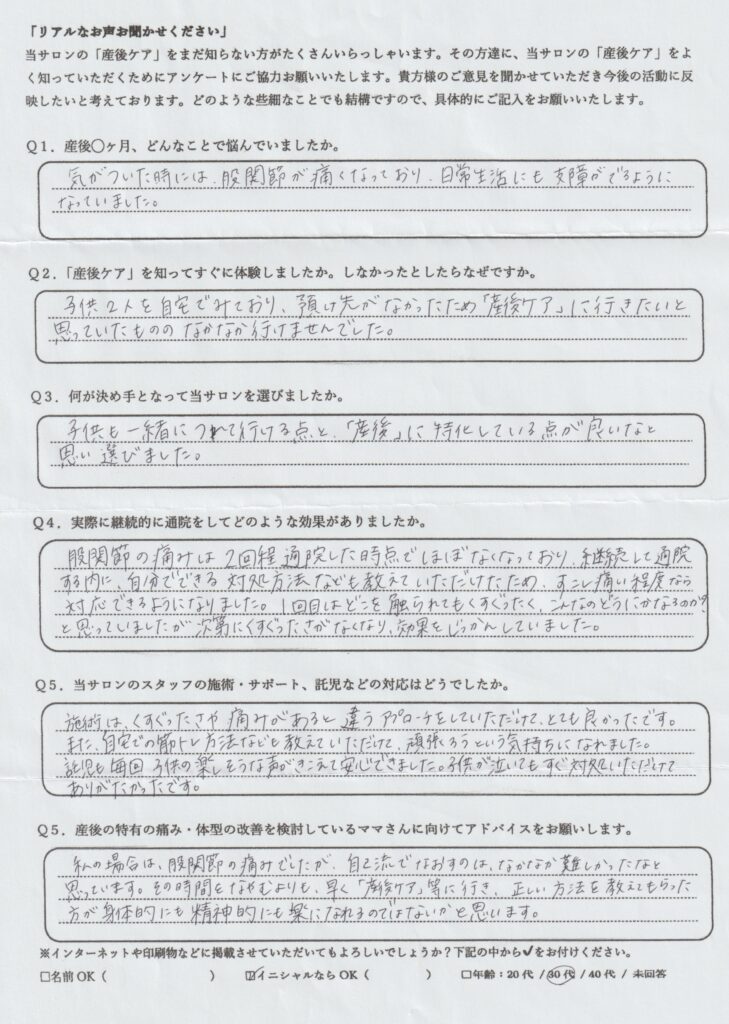 「リアルなお声お聞かせください」
当サロンの「産後ケア」をまだ知らない方がたくさんいらっしゃいます。その方達に、当サロンの「産後ケア」をよ
く知っていただくためにアンケートにご協力お願いいたします。貴方様のご意見を聞かせていただき今後の活動に反
映したいと考えております。どのような些細なことでも結構ですので、具体的にご記入をお願いいたします。
Q1．産後〇ヶ月、どんなことで悩んでいましたか。
気がついた時には、股関節が痛くなっており、日常生活にも支障がでるように
なっていました。
Q2．「産後ケア」を知ってすぐに体験しましたか。しなかったとしたらなぜですか。
子供2人を自宅でみており、預け先がなかったため「産後ケア」に行きたいと
思っていたもののなかなか行けませんでした。
Q3．何が決め手となって当サロンを選びましたか。
子供も一緒につれて行ける点と、「産後」に特化している点が良いなと
思い選びました。
Q4．実際に継続的に通院をしてどのような効果がありましたか。
股関節の痛みは2回程通院した時点でほぼなくなっており、継続して通院
する内に、自分でできる対処方法なども教えていただけたため、すこし痛い程度なら
対応できるようになりました。1回目はどこを触られてもくすぐったく、こんなのどうにかなるのか?
と思っていましたが次第にくすぐったさがなくなり、効果をじっかんしていました。
Q5．当サロンのスタッフの施術・サポート、託児などの対応はどうでしたか。
施術は、くすぐったさや痛みがあると違うアプローチをしていただけて、とても良かったです。
また、自宅での筋トレ方法なども教えていただけて、頑張ろうという気持ちになれました。
託児も毎回子供の楽しそうな声がきこえて安心できました。子供が泣いてもすぐ対処いただけて
ありがたかったです。
Q5．産後の特有の痛み・体型の改善を検討しているママさんに向けてアドバイスをお願いします。
私の場合は、股関節の痛みでしたが、自己流でなおすのは、なかなか難しかったなと
思っています。その時間をなやむよりも、早く「産後ケア」等に行き、正しい方法を教えてもらった
方が身体的にも精神的にも楽になれるのではないかと思います。
※インターネットや印刷物などに掲載させていただいてもよろしいでしょうか？下記の中から✔をお付けください。
□名前OK（　　　　　　　）　☑イニシャルならOK（　　　　）　□年齢：20代 / 30代 / 40代 / 未回答